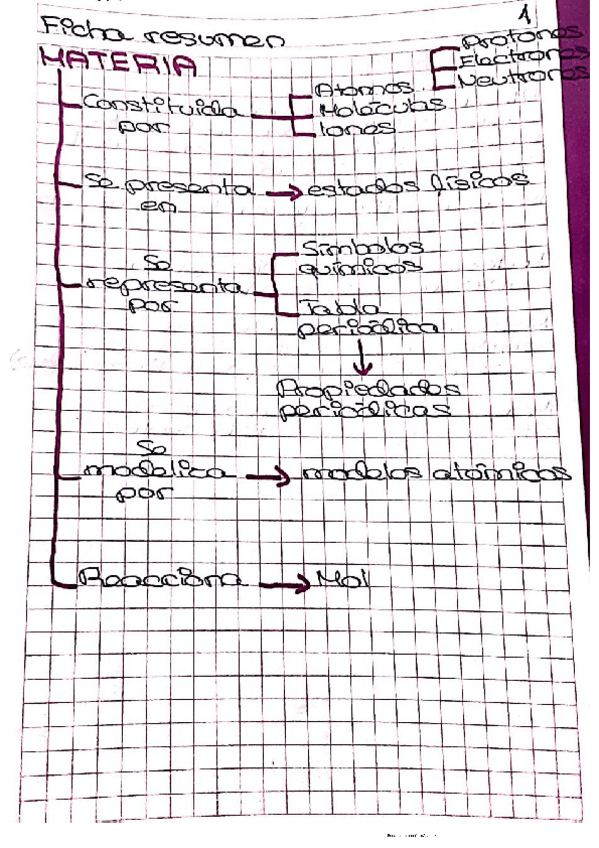 1
Ficha resumen
MATERIA
Protones
Electrones
Neutrones
Constituida
por
Atomos
Moléculas
Iones
Se presenta
en
estados físicos
Se
representa
por
Símbolos
químicos
Tabla
periódica
Propiedades
periódicas
Se
modeliza
por
modelos atómicos
Reacciona
Mol